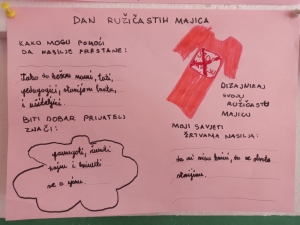 DAN RUŽIČASTIH MAJICA
KAKO MOGU POMOĆI
DA NASILJE PRESTANE:
Tako da kažem mami, tati,
pedagogici, starijem bratu,
i učiteljici.
BITI DOBAR PRIJATELJ
ZNAČI:
pomagati, čuvati
i brinuti
se o njima.
DIZAJNIRAJ
SVOJU
RUŽIČASTU
MAJICU
MOJI SAVJETI
ŽRTVAMA NASILJA:
da ni nisu krivi, da se obrate
starijima.